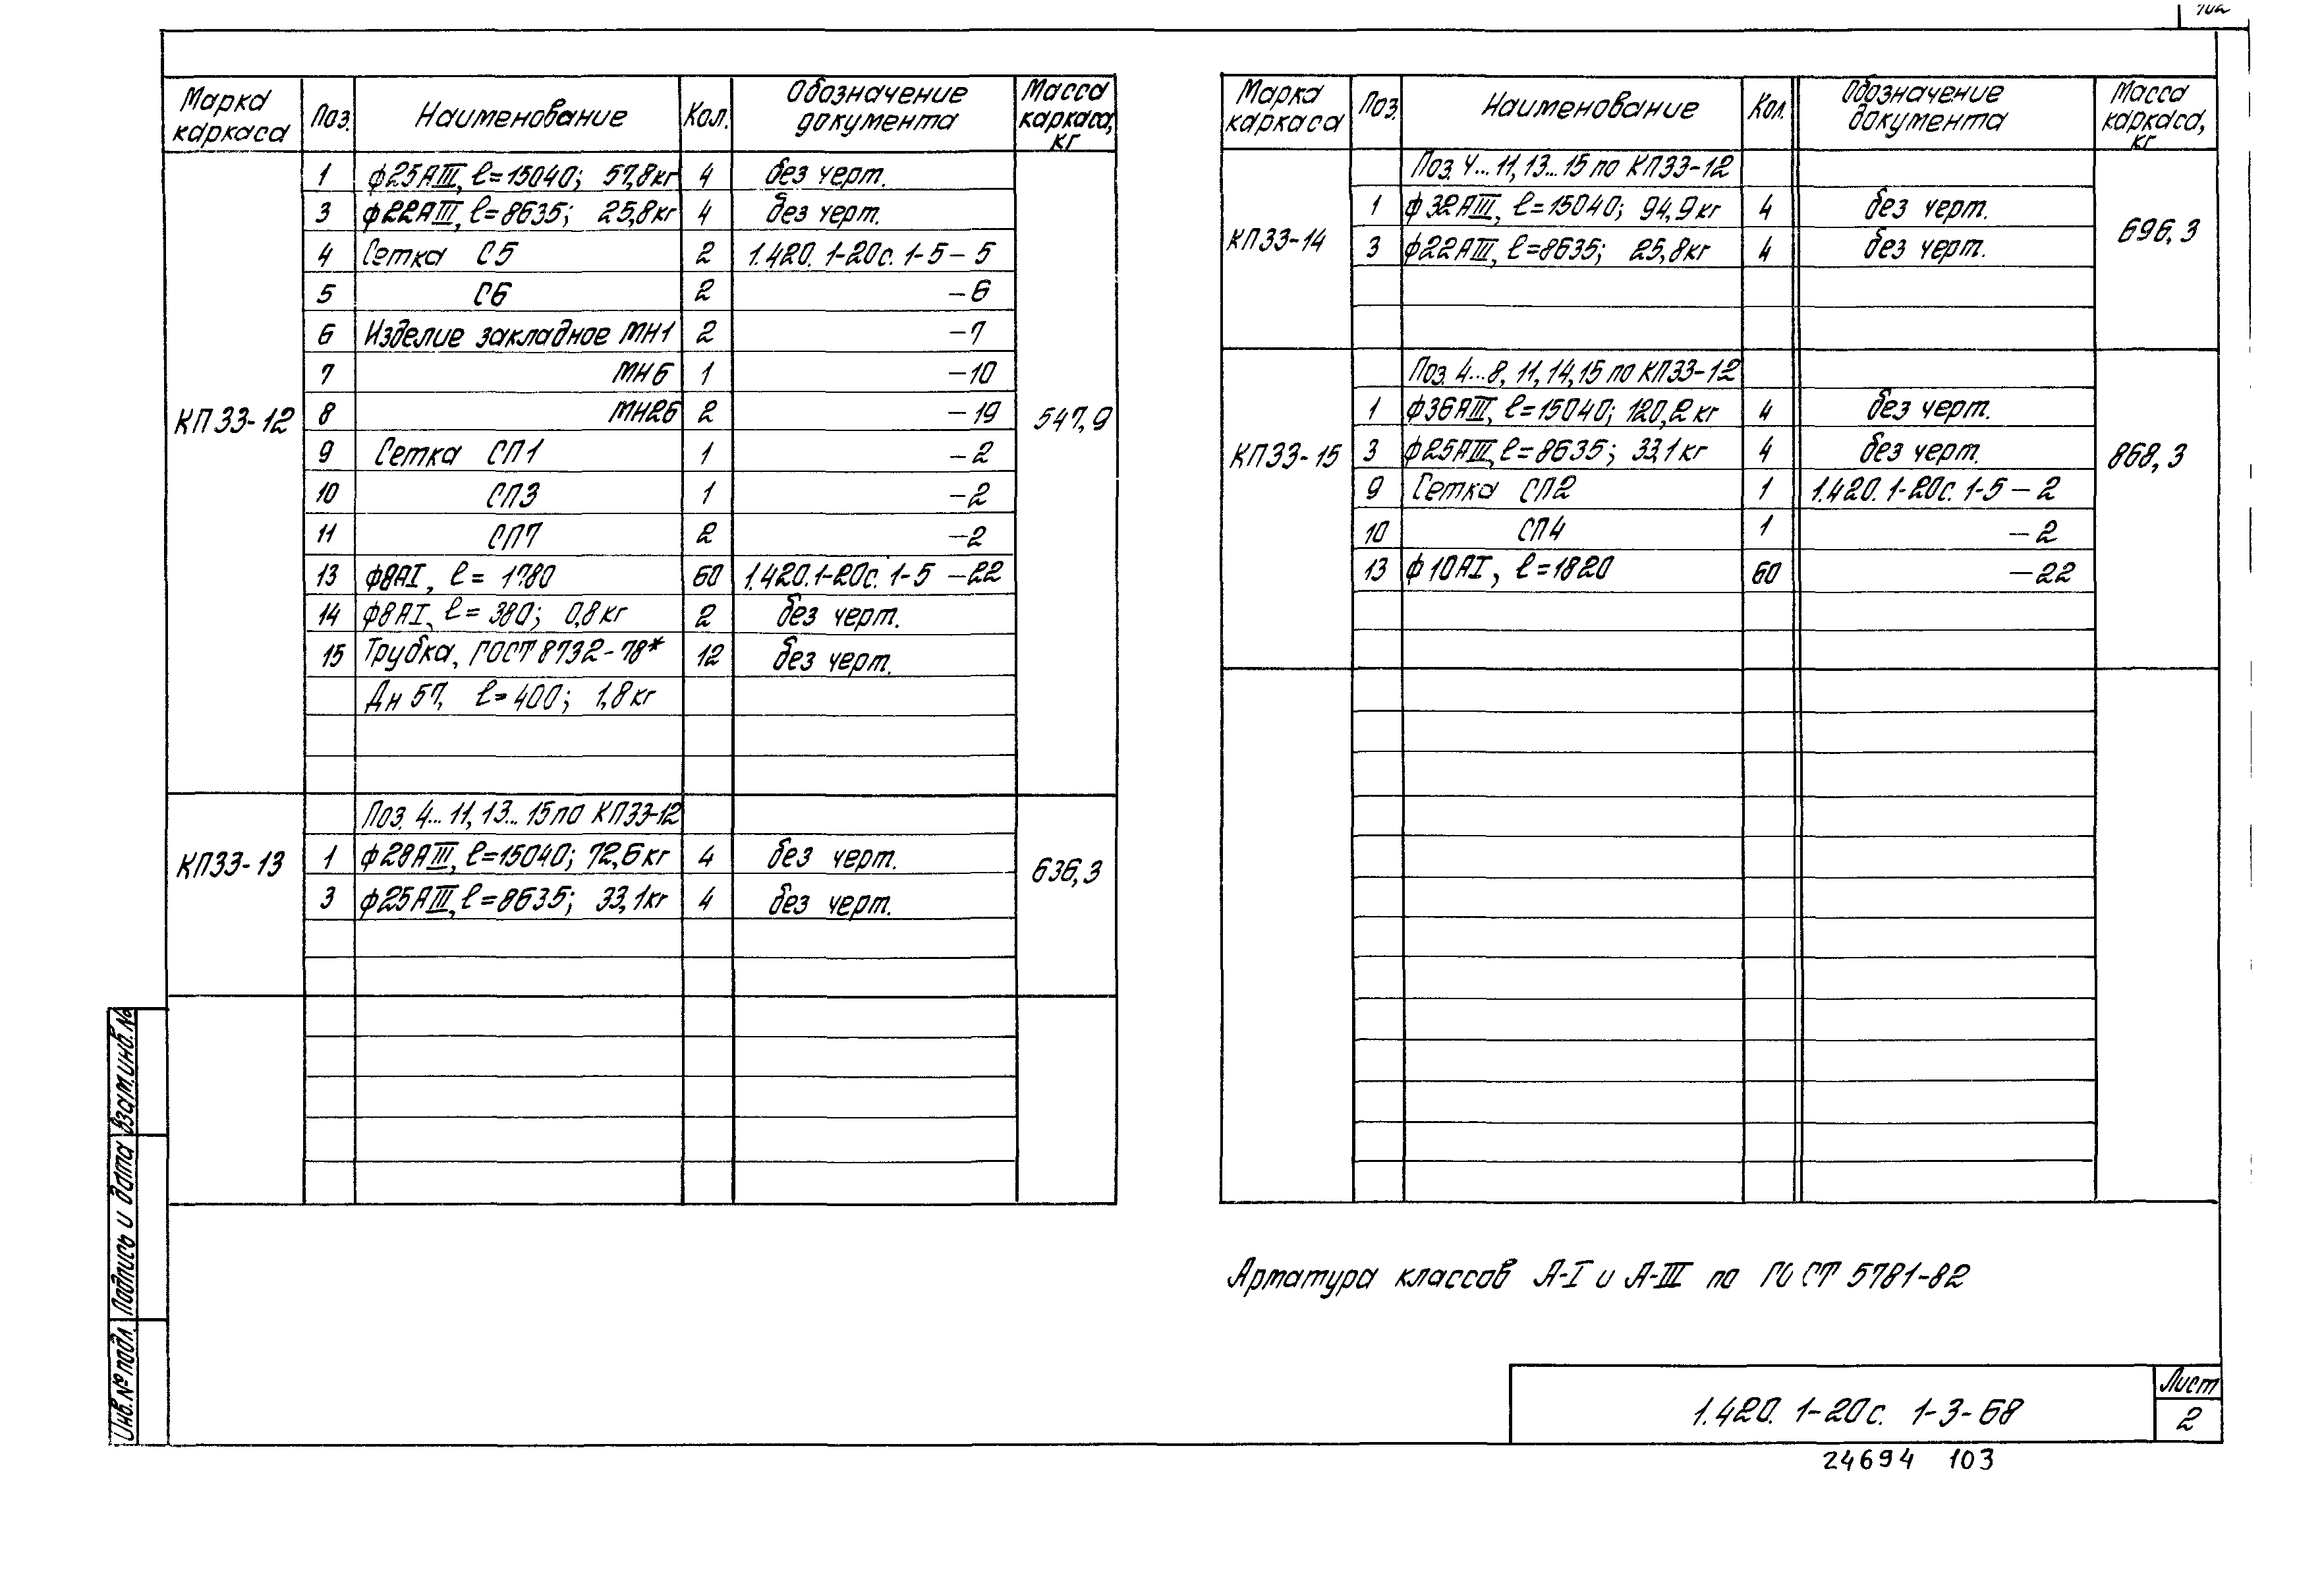 Марка каркаса Поз. Наименование Кол. Обозначение документа Масса каркаса, кг
КП33-12 547,9
1 ф25АIII, ℓ=15040; 57,8кг 4 без черт.
3 ф22АIII, ℓ=8635; 25,8кг 4 без черт.
4 Сетка С5 2 1.420.1-20с.1-5-5
5 С6 2 -6
6 Изделие закладное МН1 2 -7
7 МН6 1 -10
8 МН26 2 -19
9 Сетка СП1 1 -2
10 СП3 1 -2
11 СП7 2 -2
13 ф8АI, ℓ=1780 60 1.420.1-20с.1-5-22
14 ф8АI, ℓ=380; 0,8кг 2 без черт.
15 Трубка, ГОСТ 8732-78* 12 без черт.
Дн 57, ℓ=400; 1,8кг
КП33-13 636,3
Поз. 4...11, 13...15 по КП33-12
1 ф28АIII, ℓ=15040; 72,6кг 4 без черт.
3 ф25АIII, ℓ=8635; 33,1кг 4 без черт.
Марка каркаса Поз. Наименование Кол. Обозначение документа Масса каркаса, кг
КП33-14 696,3
Поз. 4...11, 13...15 по КП33-12
1 ф32АIII, ℓ=15040; 94,9кг 4 без черт.
3 ф22АIII, ℓ=8635; 25,8кг 4 без черт.
КП33-15 868,3
Поз. 4...8, 11, 14, 15 по КП33-12
1 ф36АIII, ℓ=15040; 120,2кг 4 без черт.
3 ф25АIII, ℓ=8635; 33,1кг 4 без черт.
9 Сетка СП2 1 1.420.1-20с.1-5-2
10 СП4 1 -2
13 ф10АI, ℓ=1820 60 -22
Арматура классов А-I и А-III по ГОСТ 5781-82
Взам.инв.№
Подпись и дата
Инв.№ подл.
1.420.1-20с. 1-3-68
Лист
2
24694 103